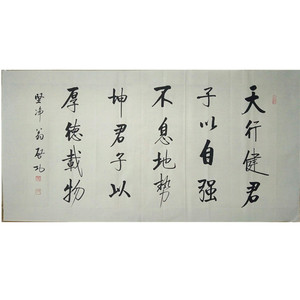 天行健君
子以自强
不息地势
坤君子以
厚德載物
坚净翁启功